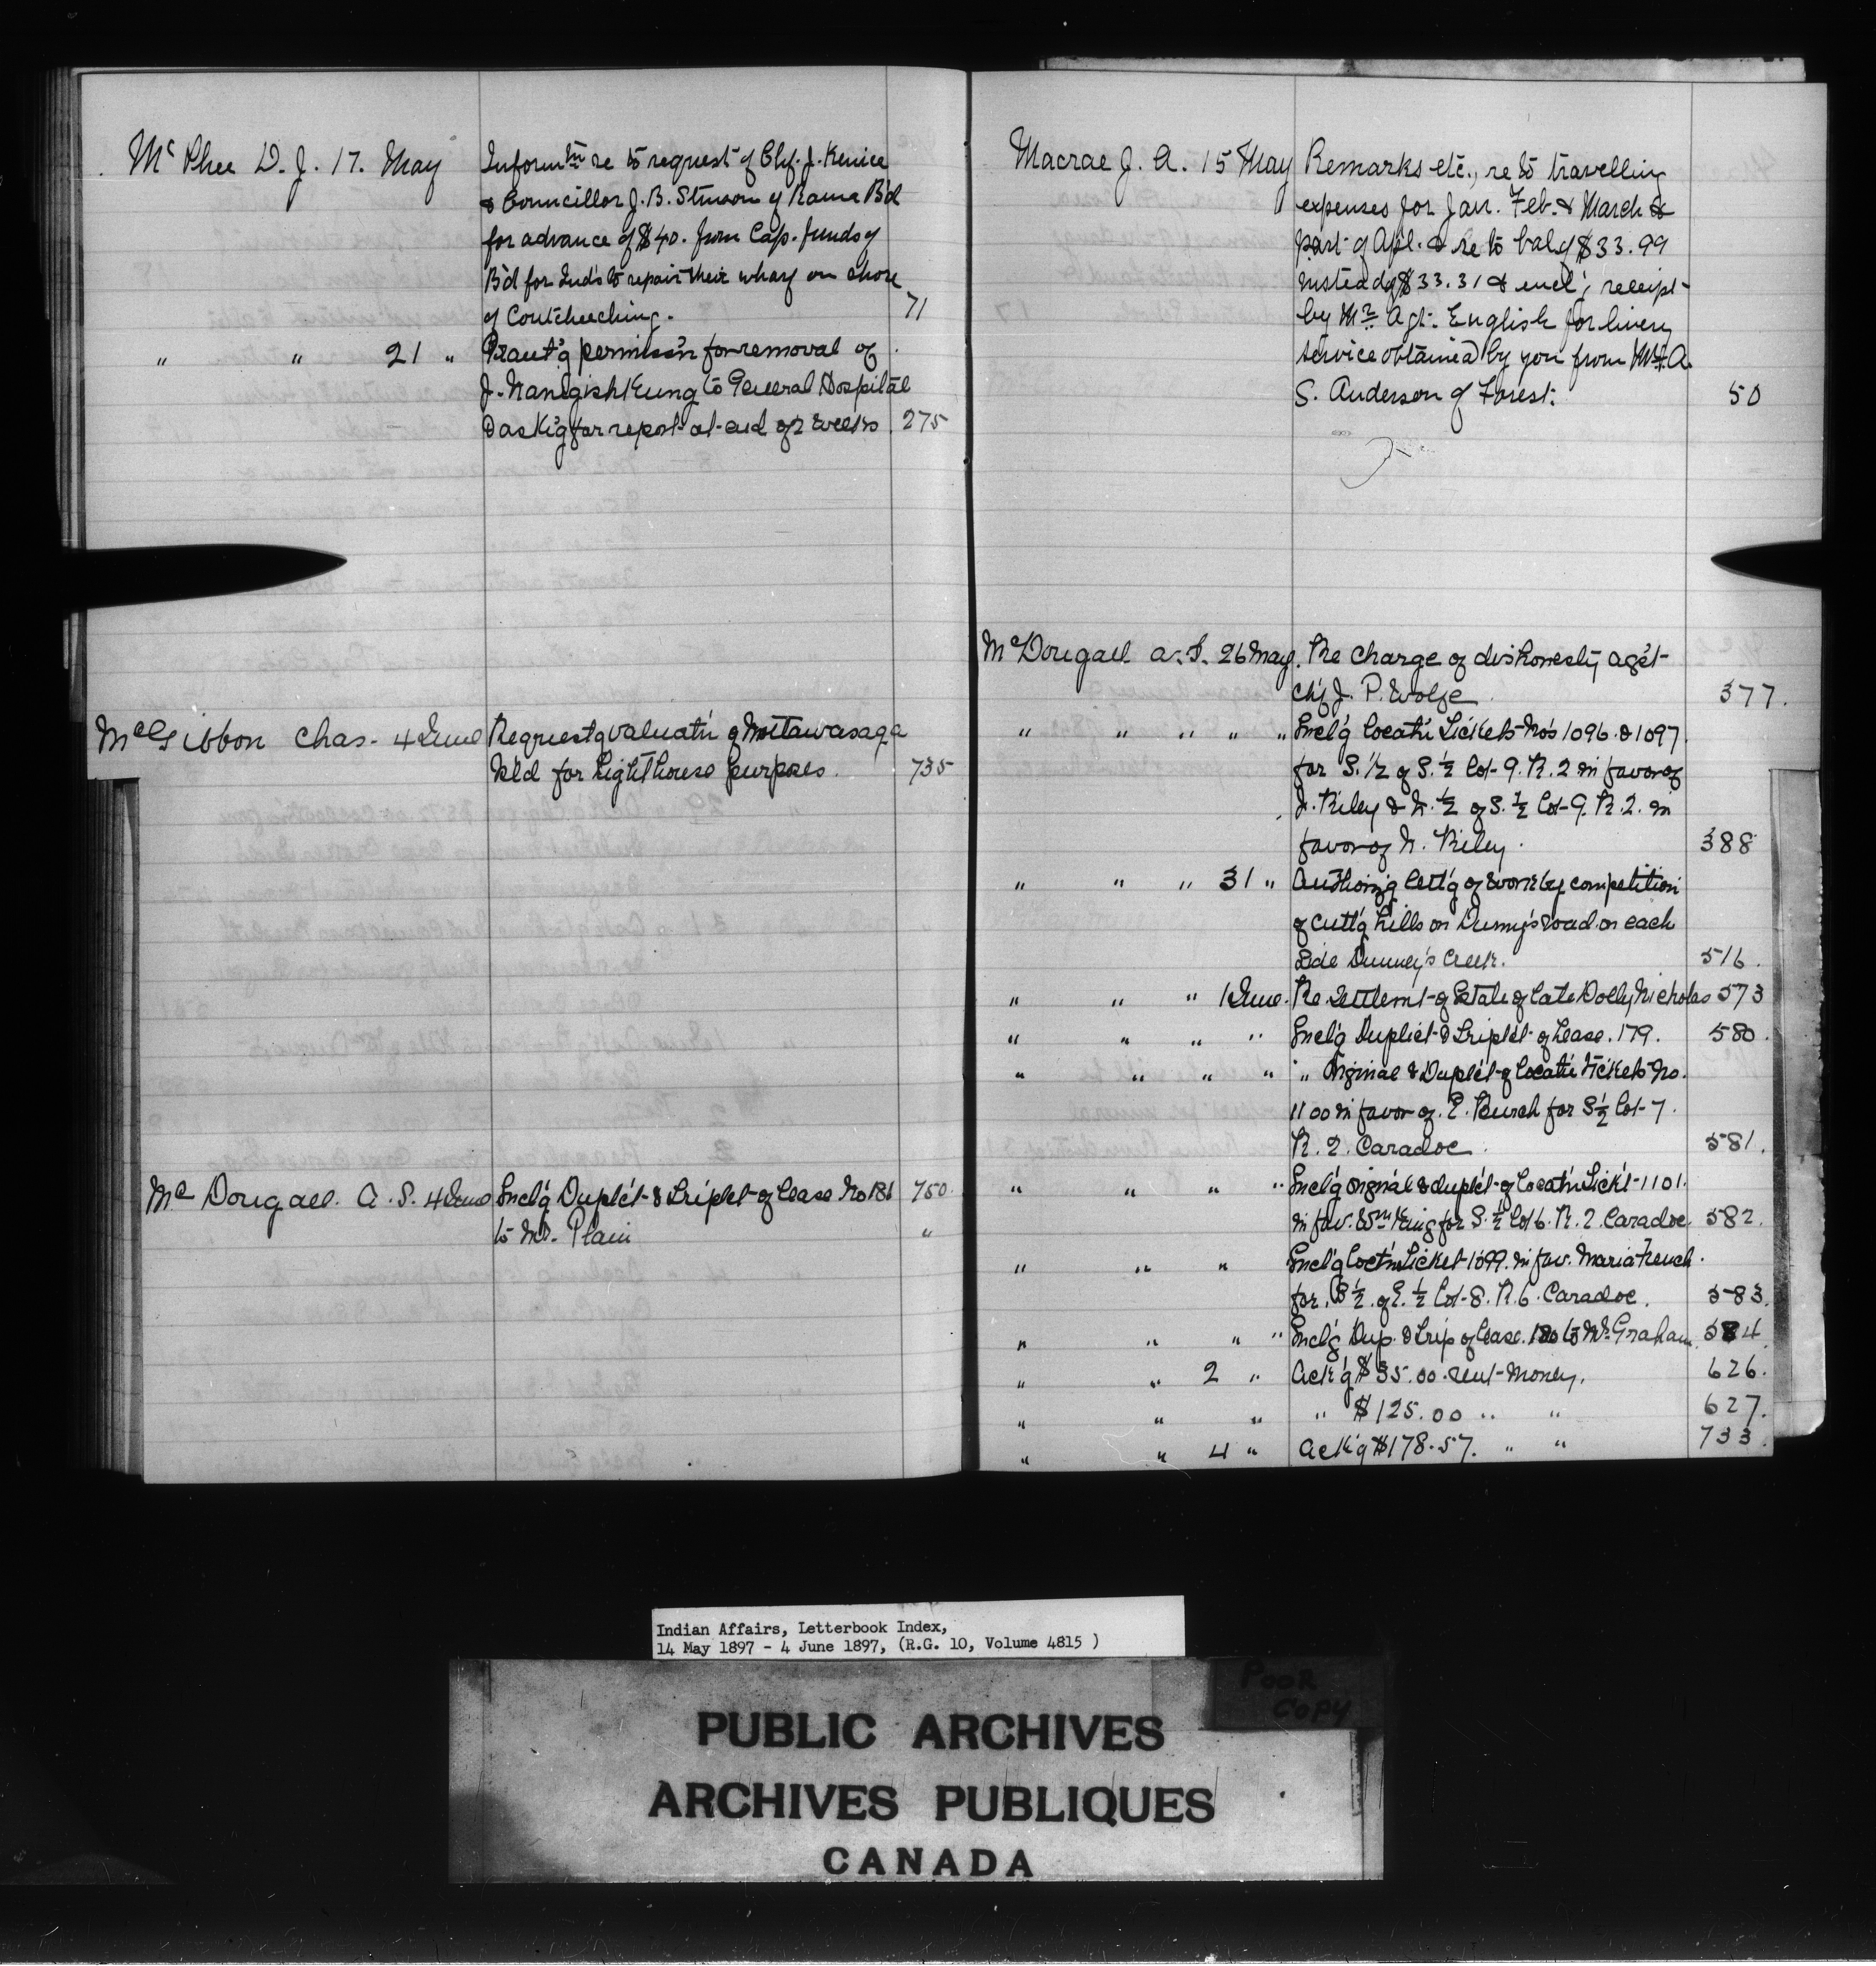 Mc Phee D. J. 17. May Inform tn re to request of Chf. J. Kenice
& Councillor J. B. Stinson of Rama B'd
for advance of $40. from Cap. funds of
B'd for Ind's to repair their wharf on shore
of Coutcheeching. 71
" " 21 " Grant'g permiss'n for removal of
J. Nanigishkung to General Hospital
& ask'g for report at end of 2 weeks. 275
McGibbon Chas. 4 June Request'g valuat'n of Nottawasaga
Isl'd for lighthouse purposes. 735
Mc Dougall. A. S. 4 June Encl'g Duplc't & Triplct of lease No 181 750.
to M. Plain "
Macrae J. A. 15 May Remarks etc., re to travelling
expenses for Jan. Feb. & March &
part of Apl. & re to bal of $33.99
instead of $33.31 & encl'g receipt
by Mr. Agt. English for livery
service obtained by you from Mr. A.
S. Anderson of Forest. 50
McDougall A. S. 26 May. Re charge of dishonesty ag'st
Ch'f J. P. Wolfe 377.
" " " " " Encl'g locat'n Tickets No's 1096 & 1097.
for S. 1/2 of S. 1/2 Lot 9. R. 2 in favor of
J. Riley & N. 1/2 of S. 1/2 Lot 9. R. 2. in
favor of N. Riley. 388
" " " 31 " Authorizing lett'g of work by competition
of cutt'g hills on Dunny's road on each
side Dunney's Creek. 516.
" " " 1 June. Re Settlem't of Estate of late Dolly Nicholas 573
" " " " Encl'g Duplict & Triplct of Lease. 179. 580.
" " " " " Original & Duplc't of locat'n tickets No.
1100 in favor of. E. Burch for S 1/2 Lot 7.
R. 2. Caradoc. 581.
" " " " Encl'g original & duplct of locat'n Tick't 1101.
in fav. Wm King for S. 1/2 Lot 6. R. 2. Caradoc. 582.
" " " Encl'g loct'n Ticket 1099. in fav. Maria French.
for. S 1/2. of E. 1/2 Lot 8. R. 6. Caradoc. 583.
" " " " Encl'g Dup. & Trip of lease. 180 to W. Graham. 584.
" " 2 " Ack'g $35.00 rent money. 626.
" " " " $125.00 " " 627.
" " 4 " Ack'g $178.57. " " 733.
Indian Affairs, Letterbook Index,
14 May 1897 - 4 June 1897, (R.G. 10, Volume 4815 )
POOR
COPY
PUBLIC ARCHIVES
ARCHIVES PUBLIQUES
CANADA